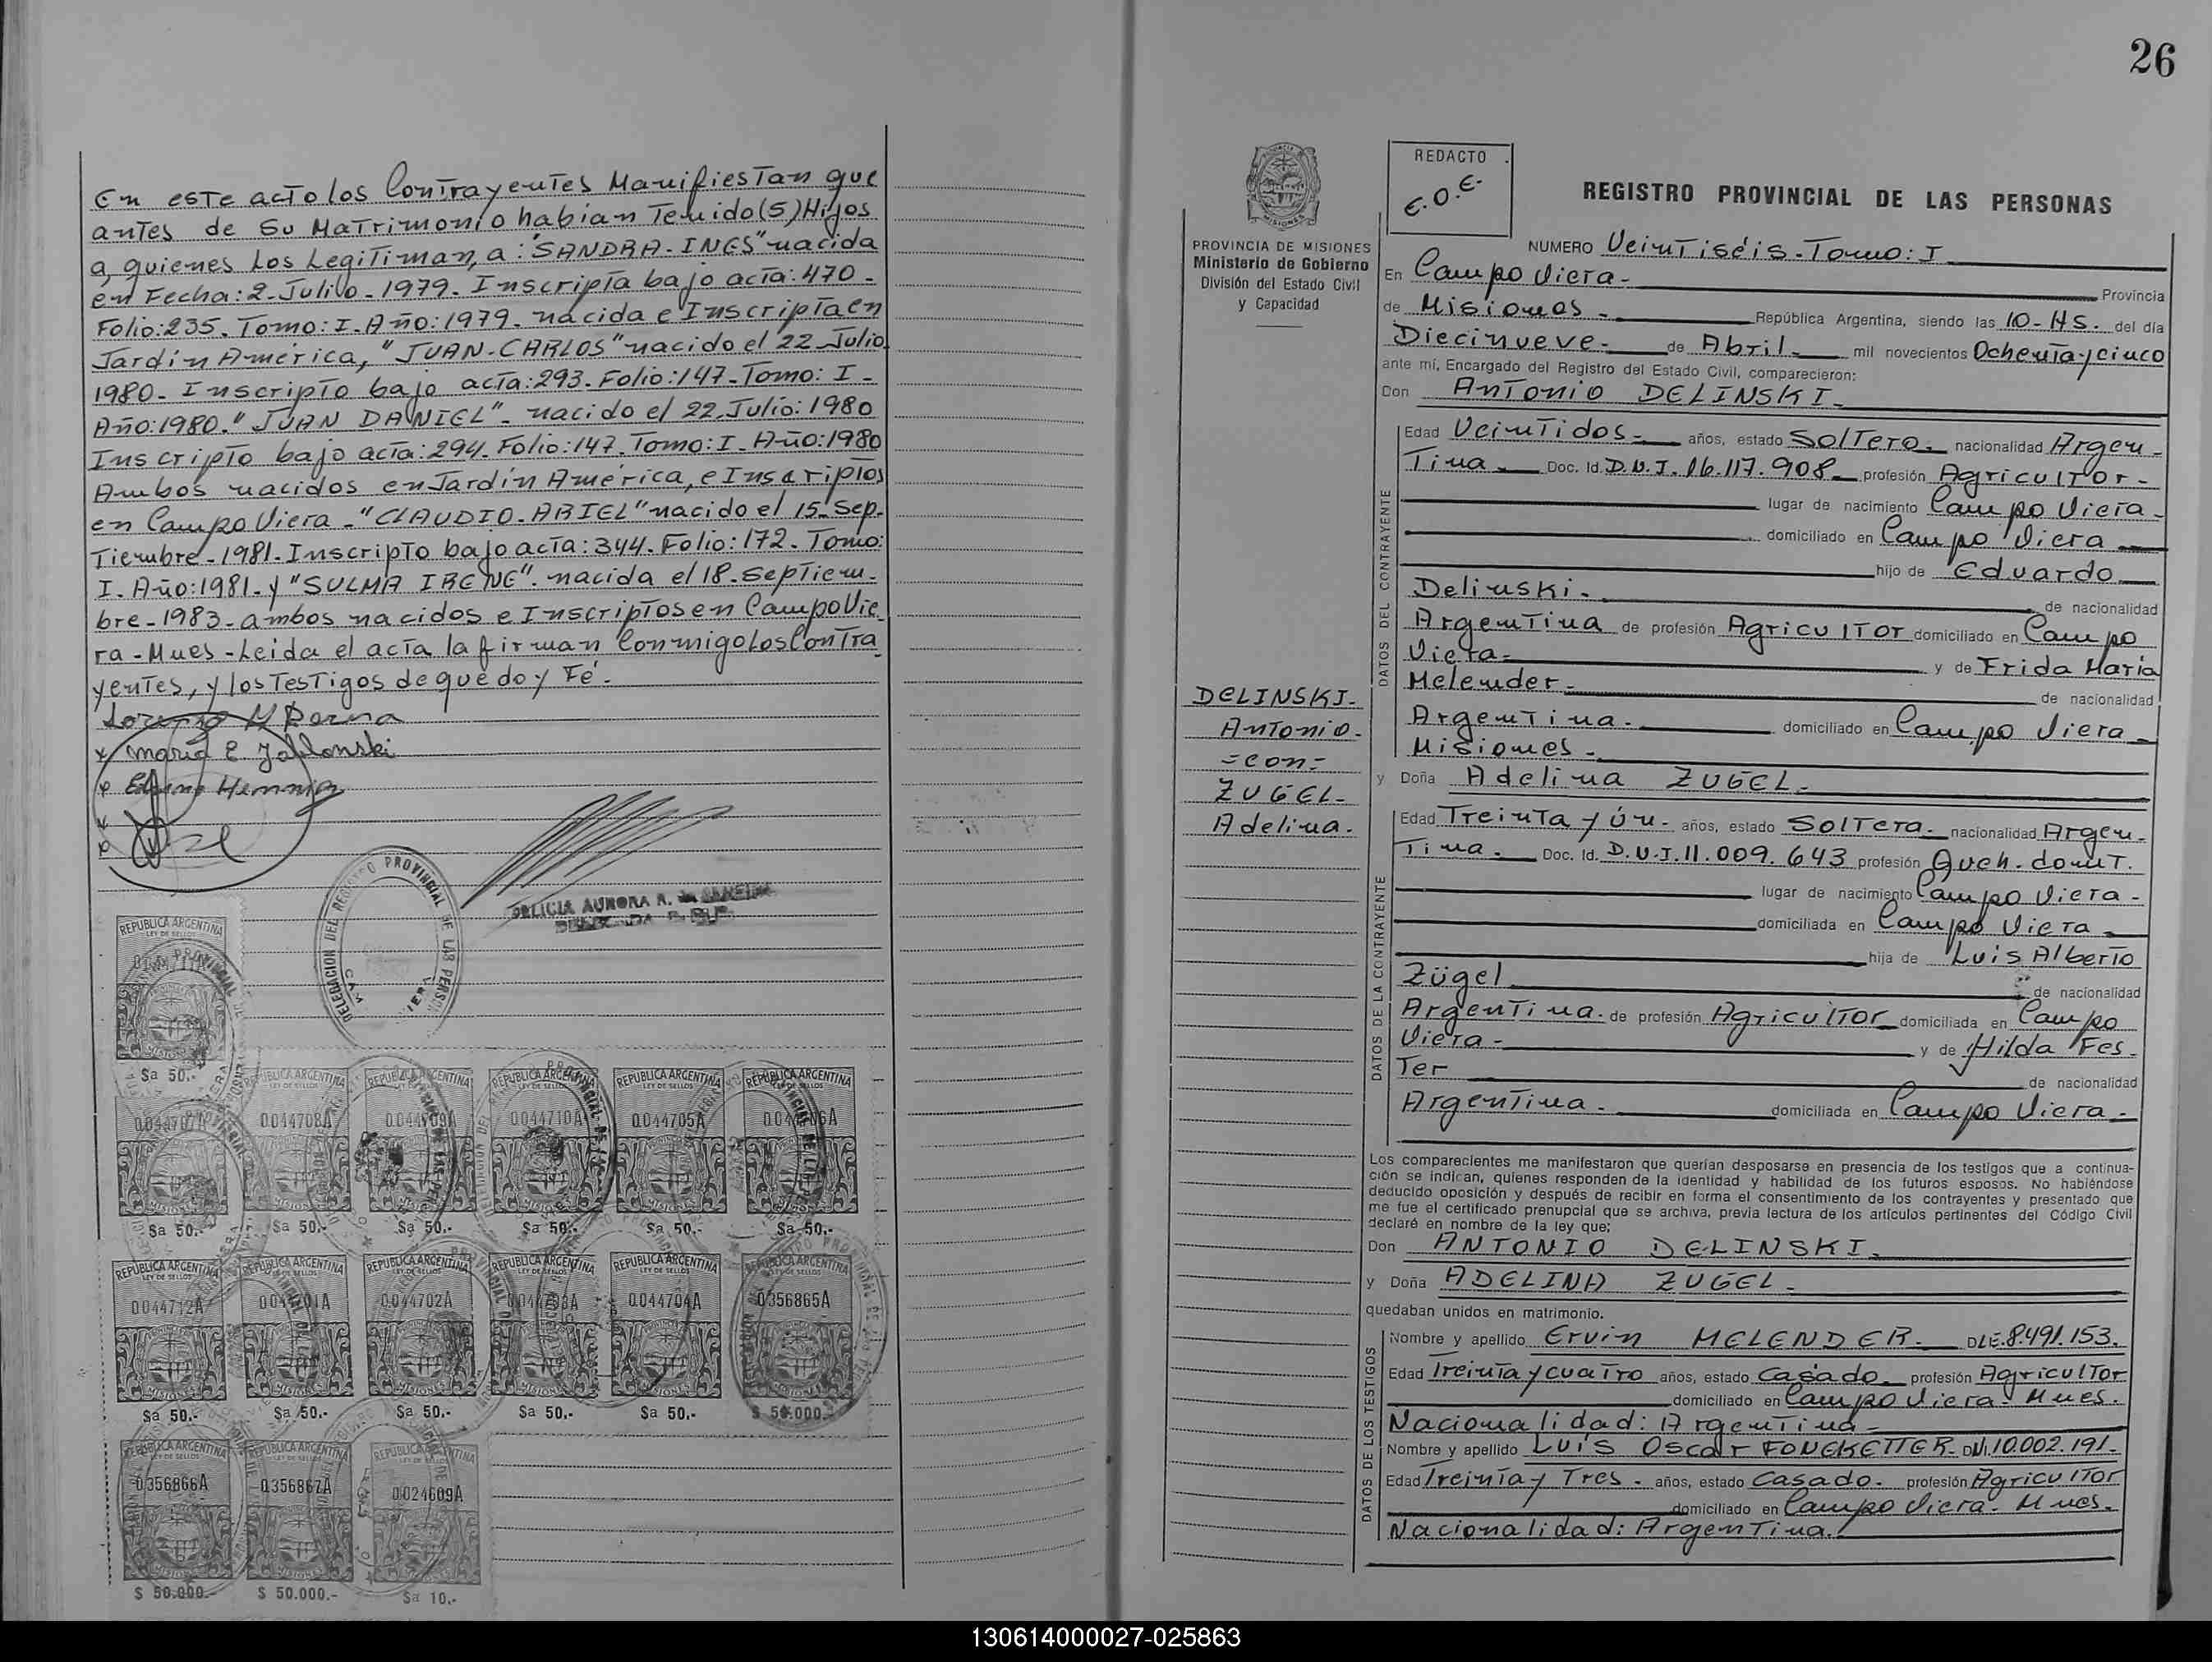 En este acto los Contrayentes Manifiestan que
antes de Su Matrimonio habian Tenido (5) Hijos
a, quienes Los Legitiman, a: "SANDRA-INES" nacida
en Fecha: 2-Julio-1979. Inscripta bajo acta: 470-
Folio: 235. Tomo: I. Año: 1979. nacida e Inscripta en
Jardín América, "JUAN-CARLOS" nacido el 22 Julio
1980- Inscripto bajo acta: 293. Folio: 147-Tomo: I-
Año: 1980. "JUAN DANIEL"- nacido el 22 Julio: 1980
Inscripto bajo acta: 294. Folio: 147. Tomo: I-Año: 1980
Ambos nacidos en Jardín América, e Inscriptos
en Campo Viera-"CLAUDIO-ARIEL" nacido el 15-Sep-
Tiembre-1981. Inscripto bajo acta: 344. Folio: 172-Tomo:
I. Año: 1981. y "SULMA IRENE". nacida el 18-Septiem-
bre-1983-ambos nacidos e Inscriptos en Campo Vie
ra-Mnes-Leida el acta la firman Conmigo Los Contra
yentes, y los Testigos de que doy Fé.
Maria E. Jablonski
DELEGACION DEL REGISTRO PROVINCIAL DE LAS PERS
AURORA R.
REPUBLICA ARGENTINA
LEY DE SELLOS
MISIONES
$a 50.-
REPUBLICA ARGENTINA REPUBLICA ARGENTINA REPUBLICA ARGENTINA REPUBLICA ARGENTINA REPUBLICA ARGENTINA
0044708A 0044709A 0044710A 0044705A
$a 50.- $a 50.- $a 50.- $a 50.- $a 50.- $a 50.-
REPUBLICA ARGENTINA REPUBLICA ARGENTINA REPUBLICA ARGENTINA REPUBLICA ARGENTINA REPUBLICA ARGENTINA REPUBLICA ARGENTINA
0044712A 0044701A 0044702A 0044703A 0044704A 0356865A
$a 50.- $a 50.- $a 50.- $a 50.- $a 50.- $ 50.000.-
REPUBLICA ARGENTINA REPUBLICA ARGENTINA REPUBLICA ARGENTINA
0356866A 0356867A 0024609A
$ 50.000.- $ 50.000.- $a 10.-
26
PROVINCIA DE MISIONES
Ministerio de Gobierno
División del Estado Civil
y Capacidad
DELINSKI-
Antonio-
=con=
ZUGEL-
Adelina.
REDACTO
E.O.E.
REGISTRO PROVINCIAL DE LAS PERSONAS
NUMERO Veintiséis-Tomo: I
En Campo Viera- Provincia
de Misiones- República Argentina, siendo las 10-HS. del día
Diecinueve- de Abril- mil novecientos Ochenta y cinco
ante mí, Encargado del Registro del Estado Civil, comparecieron:
Don Antonio DELINSKI-
DATOS DEL CONTRAYENTE
Edad Veintidos- años, estado Soltero- nacionalidad Argen-
Tina- Doc. Id. D.N.I. 16.117.908- profesión Agricultor-
lugar de nacimiento Campo Viera-
domiciliado en Campo Viera
hijo de Eduardo
Delinski- de nacionalidad
Argentina de profesión Agricultor domiciliado en Campo
Viera- y de Frida María
Melender- de nacionalidad
Argentina- domiciliado en Campo Viera-
Misiones-
y Doña Adelina ZUGEL-
DATOS DE LA CONTRAYENTE
Edad Treinta y Ún- años, estado Soltera- nacionalidad Argen-
Tina- Doc. Id. D.N.I. 11.009.643 profesión Queh. domt.
lugar de nacimiento Campo Viera-
domiciliada en Campo Viera-
hija de Luis Alberto
Zügel de nacionalidad
Argentina. de profesión Agricultor domiciliada en Campo
Viera- y de Hilda Fes-
Ter de nacionalidad
Argentina- domiciliada en Campo Viera-
Los comparecientes me manifestaron que querían desposarse en presencia de los testigos que a continua-
ción se indican, quienes responden de la identidad y habilidad de los futuros esposos. No habiéndose
deducido oposición y después de recibir en forma el consentimiento de los contrayentes y presentado que
me fue el certificado prenupcial que se archiva, previa lectura de los artículos pertinentes del Código Civil
declaré en nombre de la ley que;
Don ANTONIO DELINSKI-
y Doña ADELINA ZUGEL-
quedaban unidos en matrimonio.
DATOS DE LOS TESTIGOS
Nombre y apellido Ervin MELENDER- DLE. 8.491.153.
Edad Treinta y cuatro años, estado Casado- profesión Agricultor
domiciliado en Campo Viera-Mnes.
Nacionalidad: Argentina-
Nombre y apellido Luís Oscar FONEKETTER- DNI. 10.002.191-
Edad Treinta y Tres- años, estado Casado- profesión Agricultor
domiciliado en Campo Viera-Mnes-
Nacionalidad: Argentina.
130614000027-025863